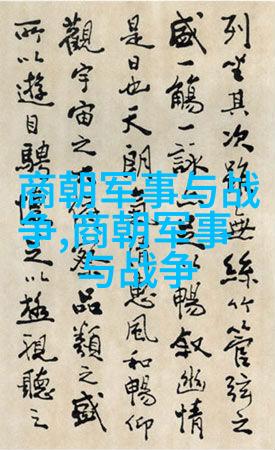 列坐其次雖無絲竹管弦之
盛一觴一詠足以暢敘幽情
是日也天朗氣惠風和暢仰
觀宇宙之俯察品類之盛
所以遊目騁懷以極視聽之
商朝军事与战
争,商朝军事
与战争